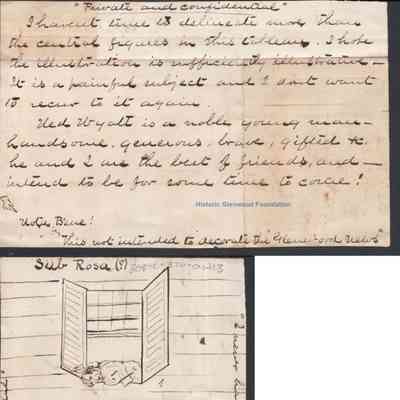 "Private and confidential"
I haven't time to delineate more than
the central figures in this tableau. I hope
the illustration is sufficiently illustrative—
It is a painful subject and I dont want
to recur to it again.
Ned Wyatt is a noble young man—
handsome, generous, brave, gifted &c.
he and I are the best of friends, and—
intend to be for some time to come!
Historic Glenwood Foundation
Nota Bene!
"This not intended to decorate the "Glenwood News"
Sub Rosa (?)
"I never